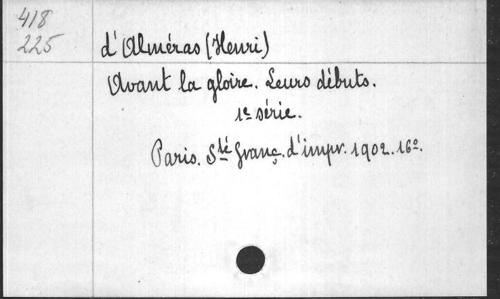 418
225
d'Alméras (Henri)
Avant la gloire. Leurs débuts.
1e série.
Paris. Sté franç. d'impr. 1902. 16o.